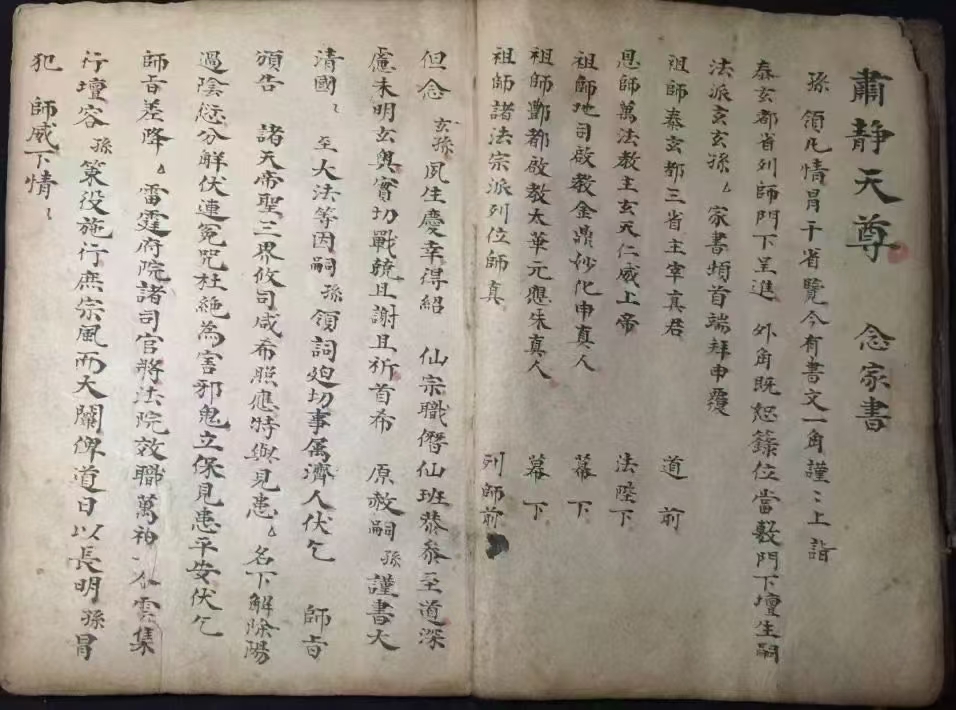 肅靜天尊　念家書
孫領凡情冒干省覽今有書文一角謹〻上詣
泰玄都省列師門下呈進　外角既恕籙位當敷門下壇生嗣
法派玄玄孫厶家書頓首端拜申覆
祖師泰玄都三省主宰真君　道前
恩師萬法教主玄天仁威上帝　法陛下
祖師地司啟教金鼎妙化申真人　幕下
祖師酆都啟教大華元應朱真人　幕下
祖師諸法宗派列位師真　列師前
但念玄孫夙生慶幸得紹　仙宗職僭仙班恭參至道深
慮未明玄奧實切戰兢且謝且祈首希　原赦嗣孫謹書大
清國厶　至大法等因嗣孫領詞廹切事属濟人伏乞　師旨
頒告　諸天帝聖三界攸司咸希照應特與見患厶名下解除陽
過陰愆分解伏連冤咒杜絶為害邪鬼立保見患平安伏乞
師旨差降厶雷霆府院諸司官將法院效職萬神雲集
行壇容孫策役施行庶宗風而大闡俾道日以長明孫冒
犯　師威下情厶